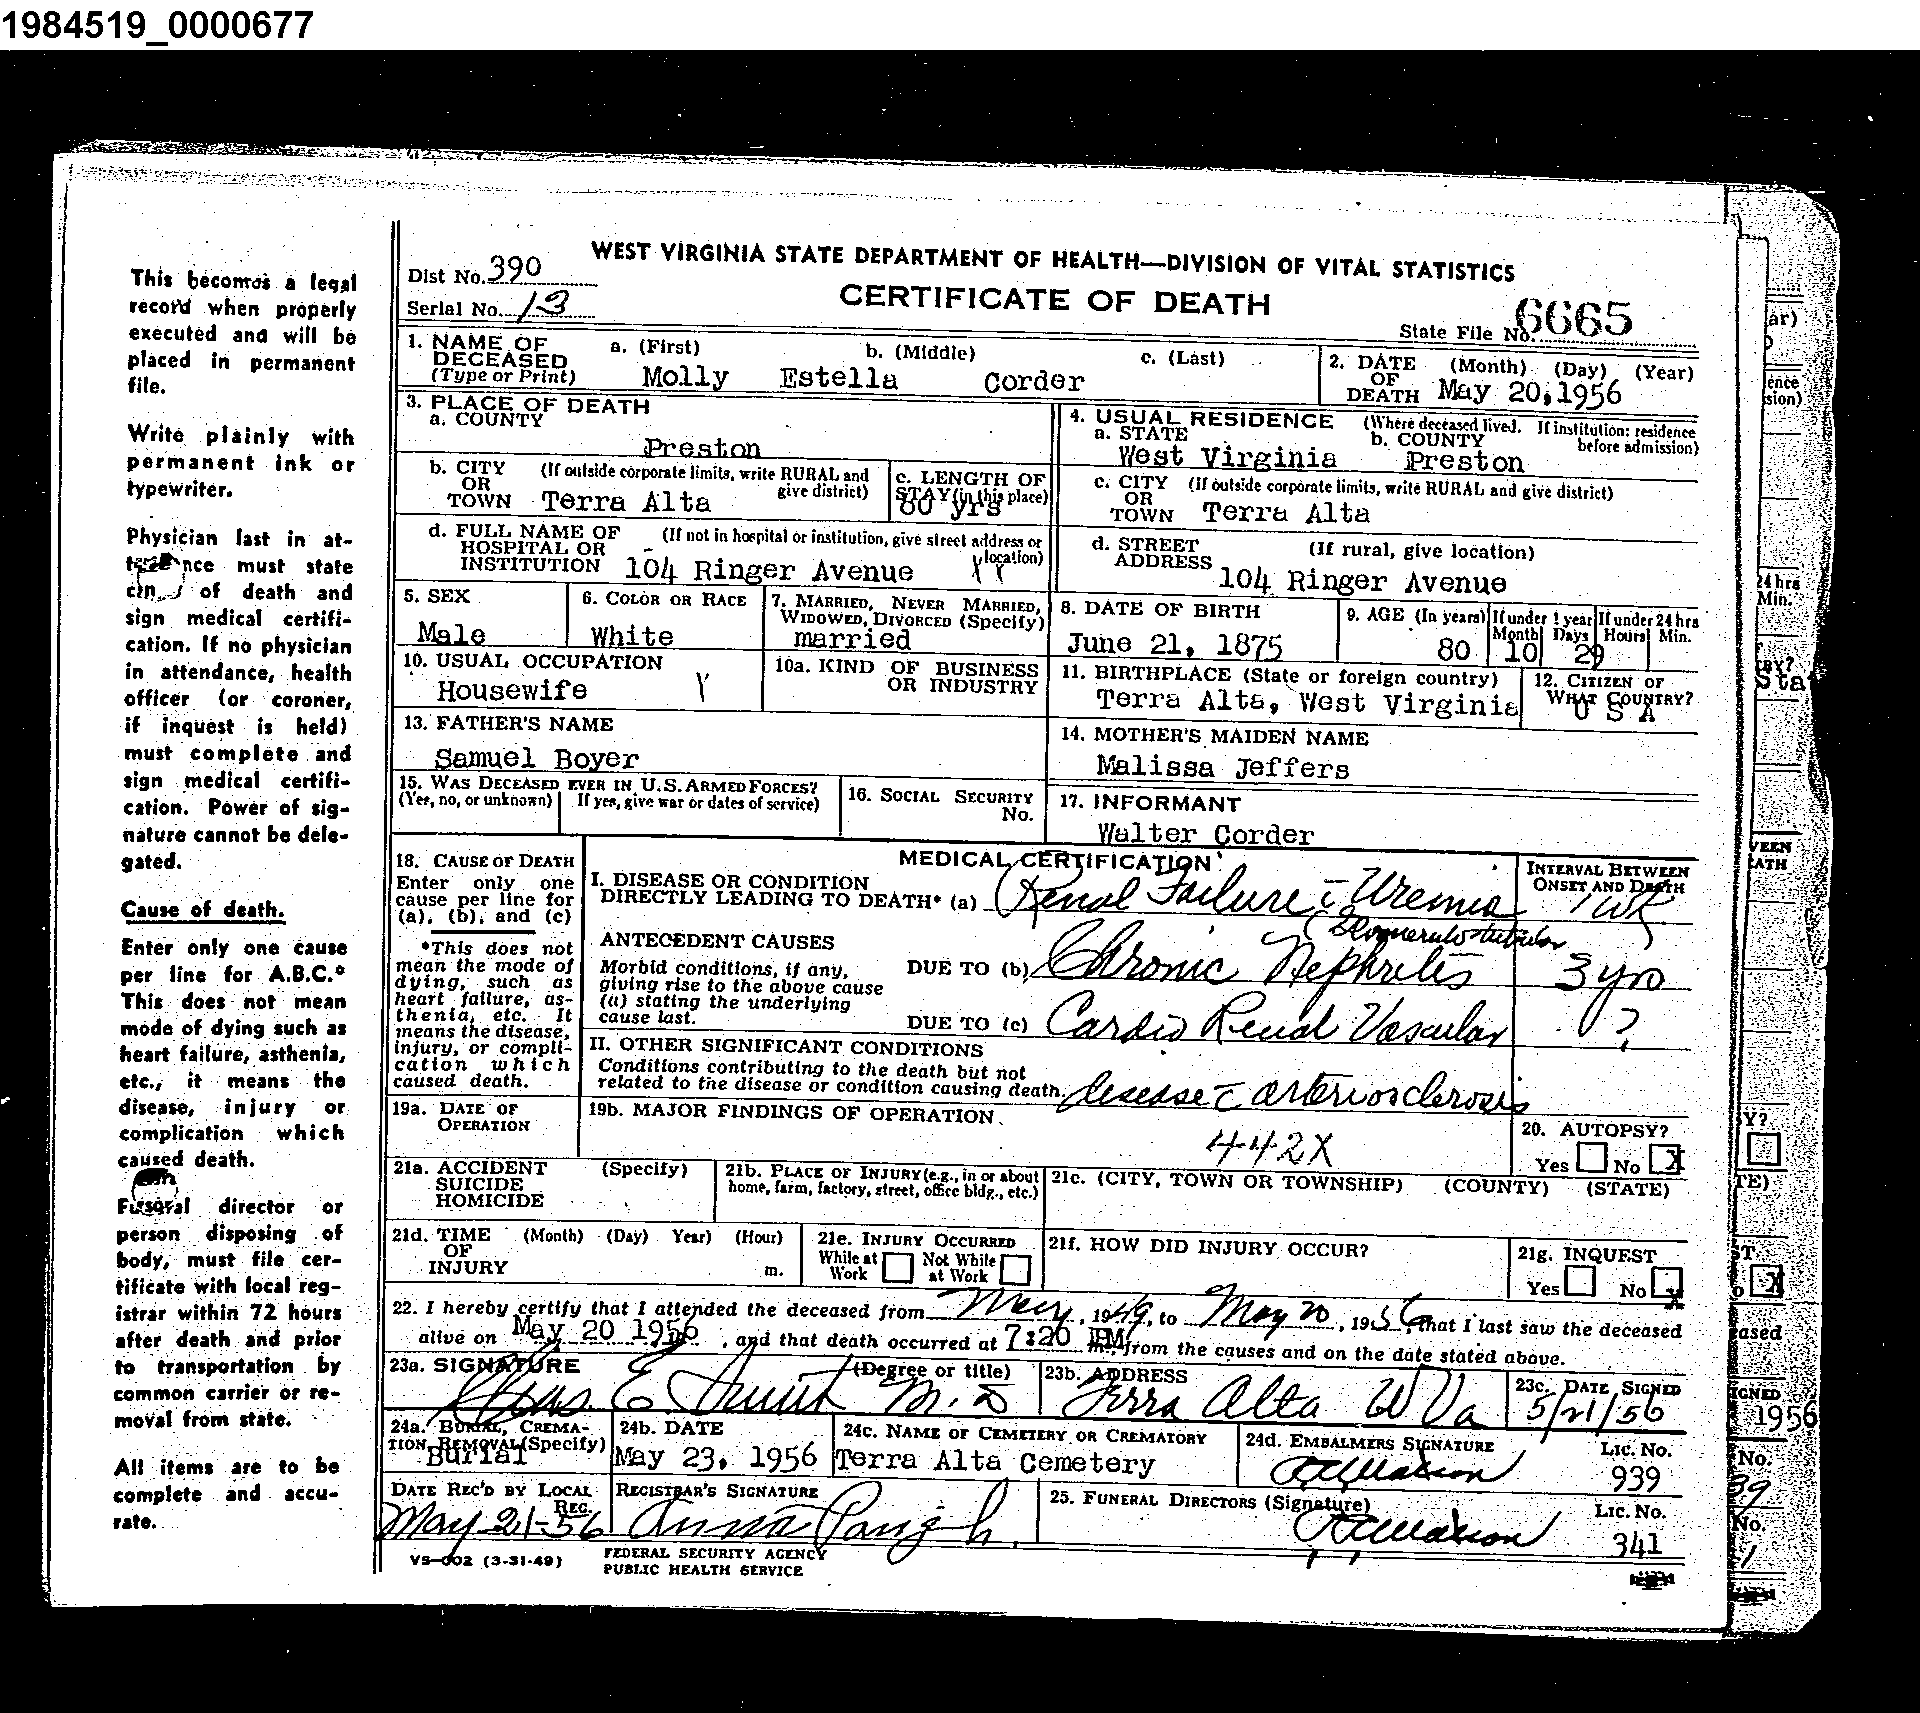 1984519_0000677
This becomes a legal
record when properly
executed and will be
placed in permanent
file.
Write plainly with
permanent ink or
typewriter.
Physician last in at-
must state
of death and
sign medical certifi-
cation. If no physician
in attendance, health
officer (or coroner,
if inquest is held)
must complete and
sign medical certifi-
cation. Power of sig-
nature cannot be dele-
gated.
Cause of death.
Enter only one cause
per line for A.B.C.*
This does not mean
mode of dying such as
heart failure, asthenia,
etc., it means the
disease, injury or
complication which
caused death.
Funeral director or
person disposing of
body, must file cer-
tificate with local reg-
istrar within 72 hours
after death and prior
to transportation by
common carrier or re-
moval from state.
All items are to be
complete and accu-
rate.
WEST VIRGINIA STATE DEPARTMENT OF HEALTH—DIVISION OF VITAL STATISTICS
Dist No. 390
CERTIFICATE OF DEATH
Serial No. 13
State File No. 6665
1. NAME OF DECEASED (Type or Print) a. (First) b. (Middle) c. (Last)
Molly Estella Corder
2. DATE OF DEATH (Month) (Day) (Year)
May 20, 1956
3. PLACE OF DEATH
a. COUNTY
Preston
4. USUAL RESIDENCE (Where deceased lived. If institution: residence before admission)
a. STATE b. COUNTY
West Virginia Preston
b. CITY OR TOWN (If outside corporate limits, write RURAL and give district)
Terra Alta
c. LENGTH OF STAY (in this place)
80 yrs
c. CITY OR TOWN (If outside corporate limits, write RURAL and give district)
Terra Alta
d. FULL NAME OF HOSPITAL OR INSTITUTION (If not in hospital or institution, give street address or location)
104 Ringer Avenue
d. STREET ADDRESS (If rural, give location)
104 Ringer Avenue
5. SEX
Male
6. COLOR OR RACE
White
7. MARRIED, NEVER MARRIED, WIDOWED, DIVORCED (Specify)
married
8. DATE OF BIRTH
June 21, 1875
9. AGE (In years) If under 1 year If under 24 hrs
Month Days Hours Min.
80 10 29
10. USUAL OCCUPATION
Housewife
10a. KIND OF BUSINESS OR INDUSTRY
11. BIRTHPLACE (State or foreign country)
Terra Alta, West Virginia
12. CITIZEN OF WHAT COUNTRY?
U S A
13. FATHER'S NAME
Samuel Boyer
14. MOTHER'S MAIDEN NAME
Malissa Jeffers
15. WAS DECEASED EVER IN U.S. ARMED FORCES?
(Yes, no, or unknown) If yes, give war or dates of service)
16. SOCIAL SECURITY No.
17. INFORMANT
Walter Corder
18. CAUSE OF DEATH
Enter only one
cause per line for
(a), (b), and (c)
*This does not
mean the mode of
dying, such as
heart failure, as-
thenia, etc. It
means the disease,
injury, or compli-
cation which
caused death.
MEDICAL CERTIFICATION
INTERVAL BETWEEN ONSET AND DEATH
I. DISEASE OR CONDITION
DIRECTLY LEADING TO DEATH* (a) Renal Failure c̄ Uremia 1 wk
ANTECEDENT CAUSES
Morbid conditions, if any,
giving rise to the above cause
(a) stating the underlying
cause last.
Glomerulotubular
DUE TO (b) Chronic Nephritis 3 yrs
DUE TO (c) Cardio Renal Vascular ?
II. OTHER SIGNIFICANT CONDITIONS
Conditions contributing to the death but not
related to the disease or condition causing death. disease c̄ arteriosclerosis
19a. DATE OF OPERATION
19b. MAJOR FINDINGS OF OPERATION
442X
20. AUTOPSY?
Yes No X
21a. ACCIDENT SUICIDE HOMICIDE (Specify)
21b. PLACE OF INJURY (e.g., in or about home, farm, factory, street, office bldg., etc.)
21c. (CITY, TOWN OR TOWNSHIP) (COUNTY) (STATE)
21d. TIME OF INJURY (Month) (Day) Year) (Hour) m.
21e. INJURY OCCURRED
While at Work Not While at Work
21f. HOW DID INJURY OCCUR?
21g. INQUEST
Yes No X
22. I hereby certify that I attended the deceased from May, 1949, to May 20, 1956, that I last saw the deceased
alive on May 20 1956, and that death occurred at 7:20 PM, from the causes and on the date stated above.
23a. SIGNATURE (Degree or title)
Chas. E. Smith M.D
23b. ADDRESS
Terra Alta W Va
23c. DATE SIGNED
5/21/56
24a. BURIAL, CREMATION, REMOVAL (Specify)
Burial
24b. DATE
May 23, 1956
24c. NAME OF CEMETERY OR CREMATORY
Terra Alta Cemetery
24d. EMBALMERS SIGNATURE LIC. NO.
939
DATE REC'D BY LOCAL REG.
May 21-56
REGISTRAR'S SIGNATURE
Anna
25. FUNERAL DIRECTORS (Signature) LIC. NO.
341
VS—002 (3-31-49)
FEDERAL SECURITY AGENCY
PUBLIC HEALTH SERVICE